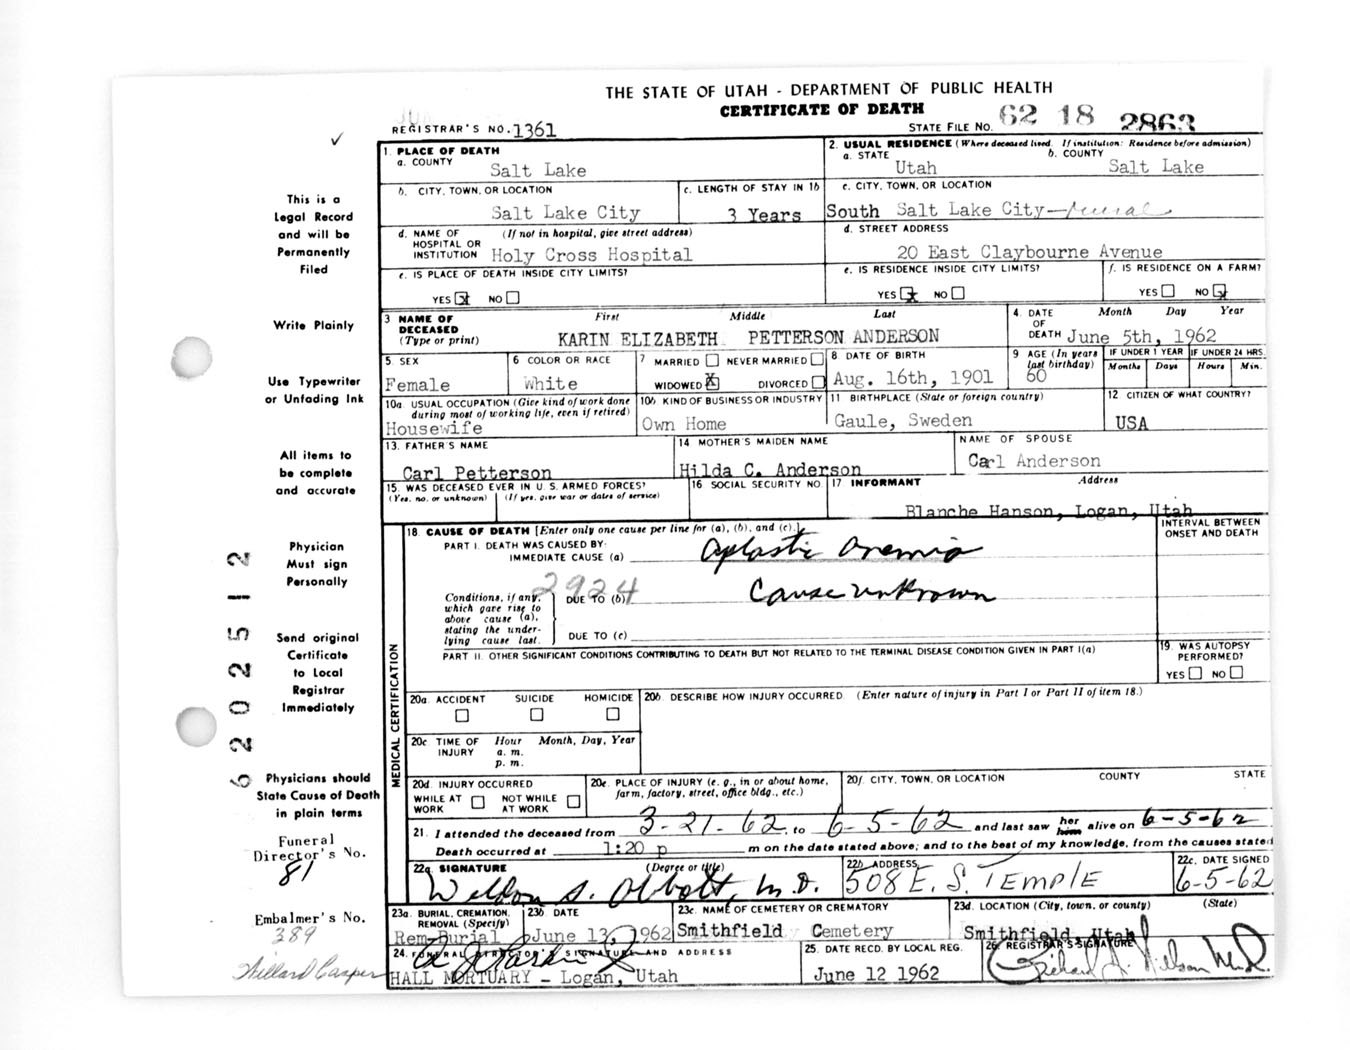 THE STATE OF UTAH - DEPARTMENT OF PUBLIC HEALTH
CERTIFICATE OF DEATH
REGISTRAR'S NO. 1361
STATE FILE NO. 62 18 2863
✓
This is a
Legal Record
and will be
Permanently
Filed
Write Plainly
Use Typewriter
or Unfading Ink
All items to
be complete
and accurate
Physician
Must sign
Personally
Send original
Certificate
to Local
Registrar
Immediately
Physicians should
State Cause of Death
in plain terms
Funeral
Director's No.
81
Embalmer's No.
389
Willard Casper
620 2512
1. PLACE OF DEATH
a. COUNTY
Salt Lake
2. USUAL RESIDENCE (Where deceased lived. If institution: Residence before admission)
a. STATE
Utah
b. COUNTY
Salt Lake
b. CITY, TOWN, OR LOCATION
Salt Lake City
c. LENGTH OF STAY IN 1b
3 Years
c. CITY, TOWN, OR LOCATION
South Salt Lake City—rural
d. NAME OF HOSPITAL OR INSTITUTION
(If not in hospital, give street address)
Holy Cross Hospital
d. STREET ADDRESS
20 East Claybourne Avenue
e. IS PLACE OF DEATH INSIDE CITY LIMITS?
YES x NO
e. IS RESIDENCE INSIDE CITY LIMITS?
YES x NO
f. IS RESIDENCE ON A FARM?
YES NO x
3 NAME OF DECEASED (Type or print)
First Middle Last
KARIN ELIZABETH PETTERSON ANDERSON
4. DATE OF DEATH
Month Day Year
June 5th, 1962
5. SEX
Female
6 COLOR OR RACE
White
7 MARRIED NEVER MARRIED
WIDOWED X DIVORCED
8 DATE OF BIRTH
Aug. 16th, 1901
9 AGE (In years last birthday)
60
IF UNDER 1 YEAR
Months Days
IF UNDER 24 HRS.
Hours Min.
10a. USUAL OCCUPATION (Give kind of work done during most of working life, even if retired)
Housewife
10b KIND OF BUSINESS OR INDUSTRY
Own Home
11 BIRTHPLACE (State or foreign country)
Gaule, Sweden
12 CITIZEN OF WHAT COUNTRY?
USA
13. FATHER'S NAME
Carl Petterson
14 MOTHER'S MAIDEN NAME
Hilda C. Anderson
NAME OF SPOUSE
Carl Anderson
15. WAS DECEASED EVER IN U. S. ARMED FORCES?
(Yes, no, or unknown) (If yes, give war or dates of service)
16 SOCIAL SECURITY NO.
17 INFORMANT Address
Blanche Hanson, Logan, Utah
18 CAUSE OF DEATH [Enter only one cause per line for (a), (b), and (c).]
INTERVAL BETWEEN ONSET AND DEATH
PART I. DEATH WAS CAUSED BY:
IMMEDIATE CAUSE (a) Aplastic Anemia
2924
Conditions, if any, which gave rise to above cause (a), stating the underlying cause last.
DUE TO (b) Cause unknown
DUE TO (c)
PART II. OTHER SIGNIFICANT CONDITIONS CONTRIBUTING TO DEATH BUT NOT RELATED TO THE TERMINAL DISEASE CONDITION GIVEN IN PART I(a)
19. WAS AUTOPSY PERFORMED?
YES NO
MEDICAL CERTIFICATION
20a. ACCIDENT SUICIDE HOMICIDE
20b. DESCRIBE HOW INJURY OCCURRED. (Enter nature of injury in Part I or Part II of item 18.)
20c TIME OF INJURY
Hour Month, Day, Year
a. m.
p. m.
20d. INJURY OCCURRED
WHILE AT WORK NOT WHILE AT WORK
20e. PLACE OF INJURY (e. g., in or about home, farm, factory, street, office bldg., etc.)
20f. CITY, TOWN, OR LOCATION COUNTY STATE
21. I attended the deceased from 3-21-62, to 6-5-62 and last saw her him alive on 6-5-62
Death occurred at 1:20 p m on the date stated above; and to the best of my knowledge, from the causes stated
22a. SIGNATURE (Degree or title)
Weldon S. Abbott, M.D.
22b ADDRESS
508 E. S. TEMPLE
22c. DATE SIGNED
6-5-62
23a. BURIAL, CREMATION, REMOVAL (Specify)
Rem-Burial
23b. DATE
June 13, 1962
23c. NAME OF CEMETERY OR CREMATORY
Smithfield Cemetery
23d. LOCATION (City, town, or county) (State)
Smithfield, Utah
24. FUNERAL DIRECTOR'S SIGNATURE AND ADDRESS
HALL MORTUARY - Logan, Utah
25. DATE RECD. BY LOCAL REG.
June 12 1962
26. REGISTRAR'S SIGNATURE